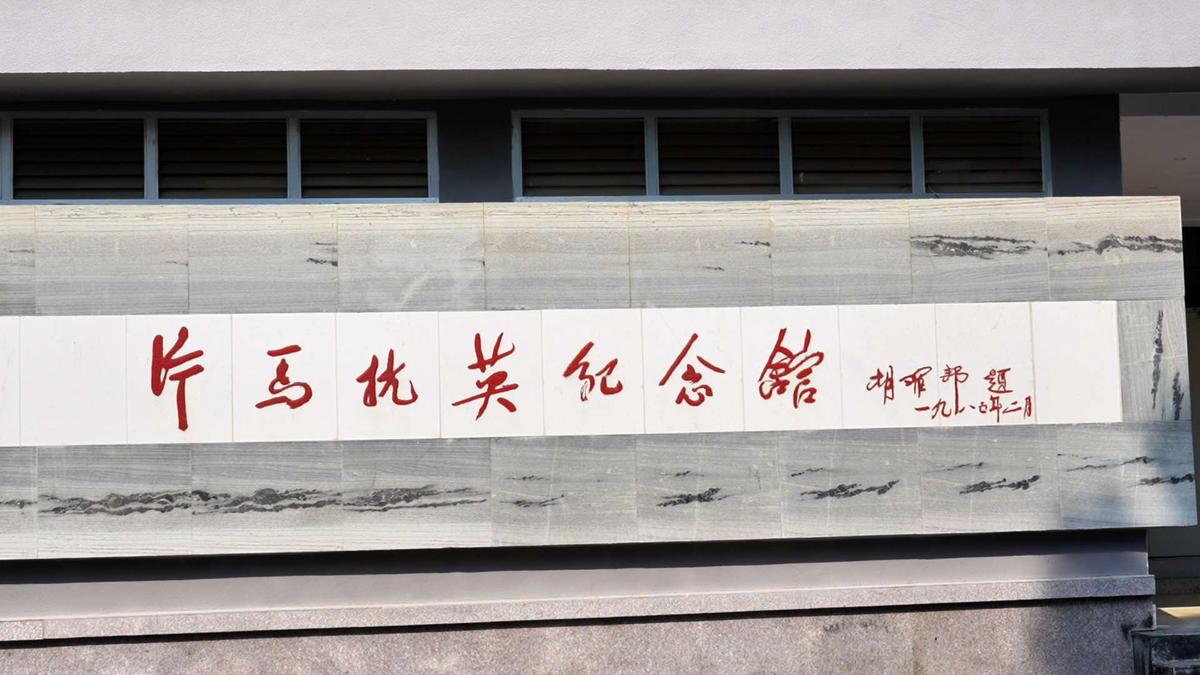 片马抗英纪念館
胡耀邦 题
一九八七年二月